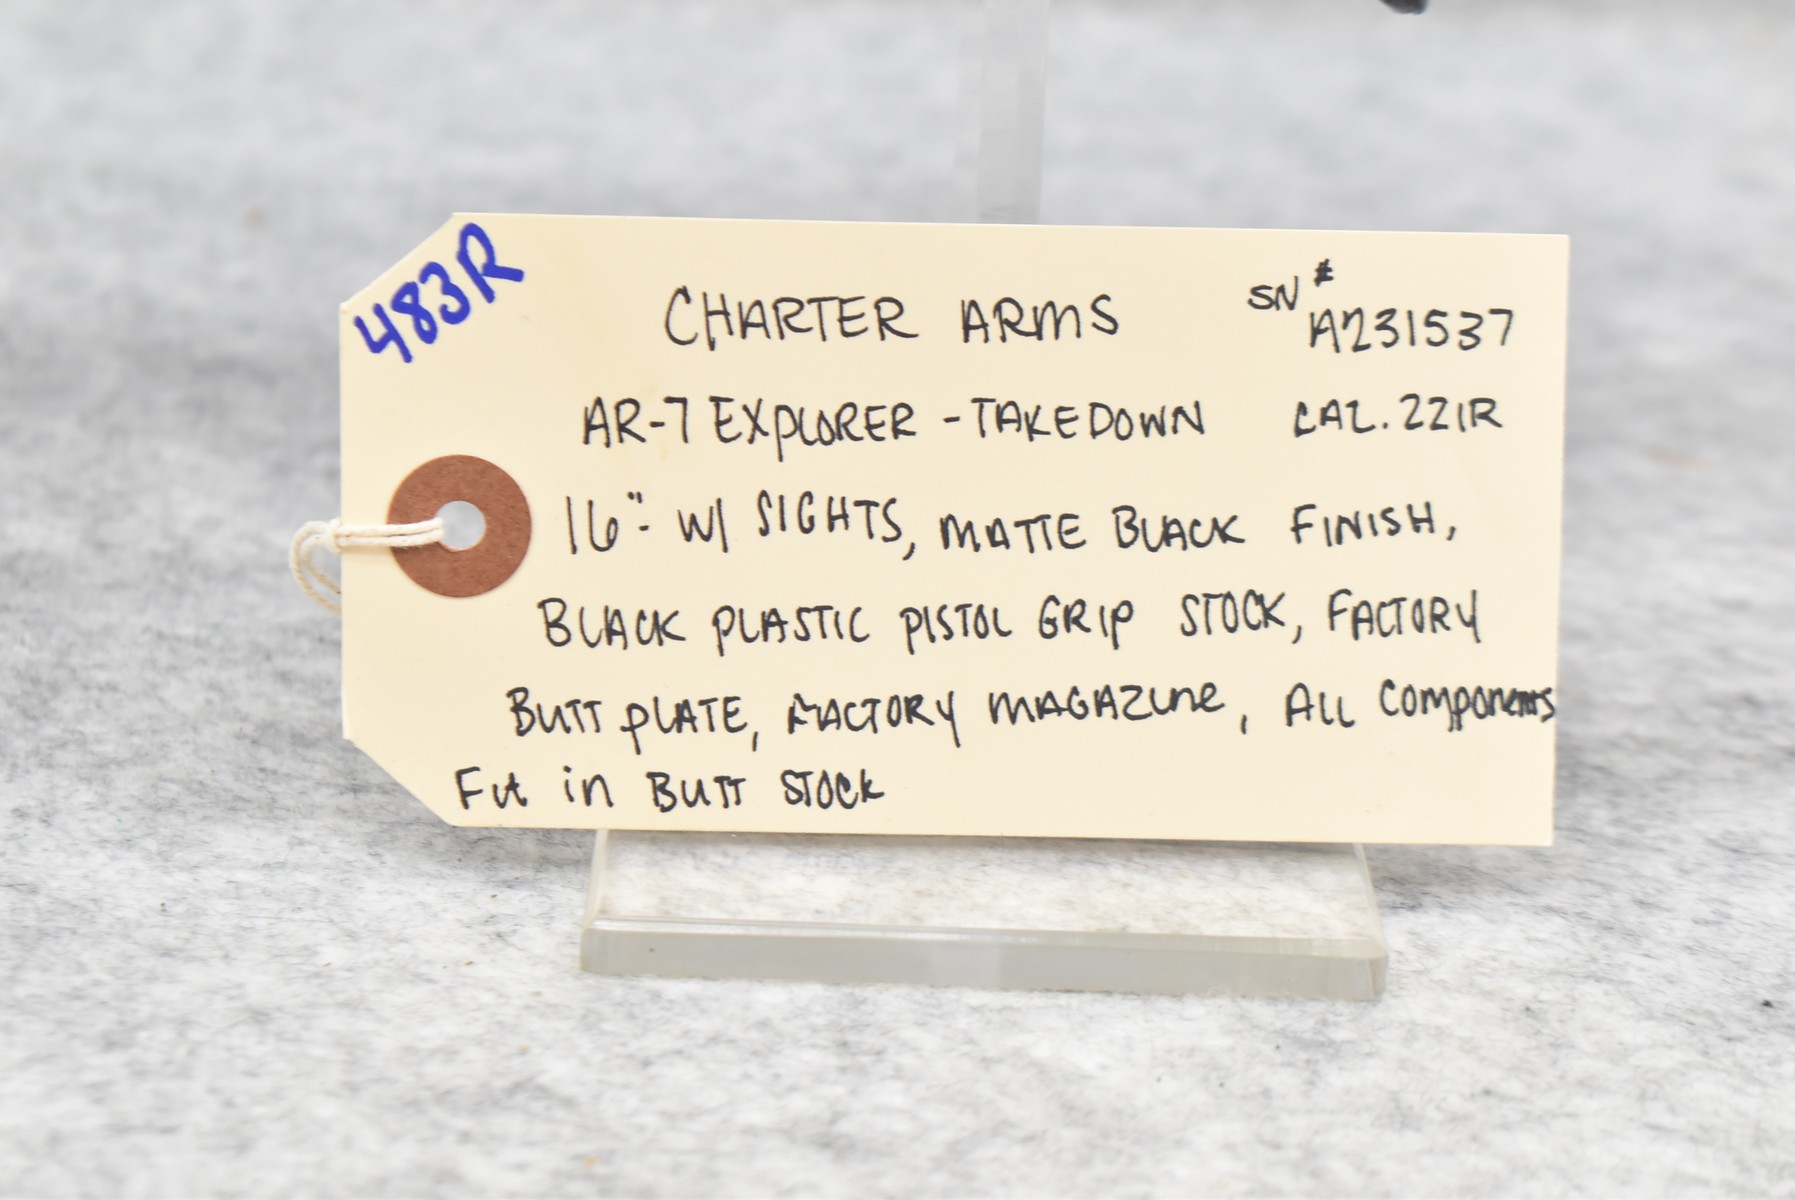 483R
CHARTER ARMS SN# A231537
AR-7 EXPLORER - TAKEDOWN CAL. 22LR
16" - W/ SIGHTS, MATTE BLACK FINISH,
BLACK PLASTIC PISTOL GRIP STOCK, FACTORY
BUTT PLATE, FACTORY MAGAZINE, ALL COMPONENTS
Fit in BUTT STOCK